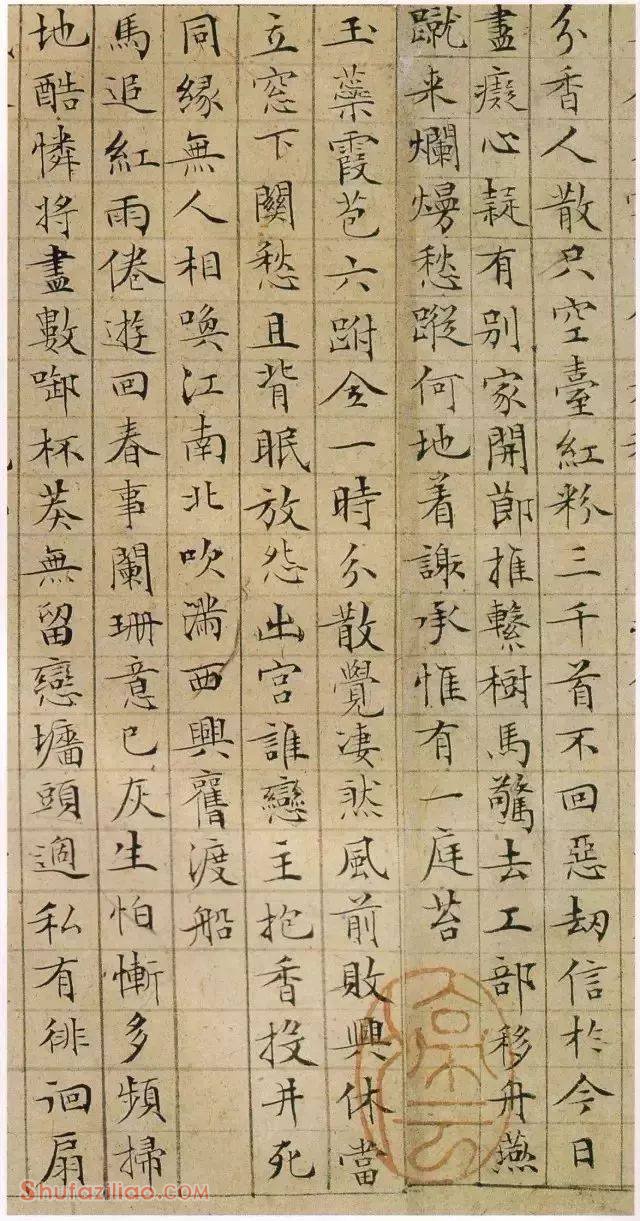 分香人散只空臺紅粉三千首不回惡刧信於今日
盡癡心疑有別家開節推繫樹馬驚去工部移舟燕
蹴来爛熳愁蹤何地着謝承惟有一庭苔
玉蘂霞苞六跗全一時分散覺凄然風前敗興休當
立窓下關愁且背眠放怨出宮誰戀主抱香投井死
同緣無人相喚江南北吹滿西興舊渡船
馬追紅雨倦遊回春事闌珊意已灰生怕慚多頻掃
地酷憐將盡數啣杯莫無留戀墻頭過私有徘徊扇
Shufaziliao.COM